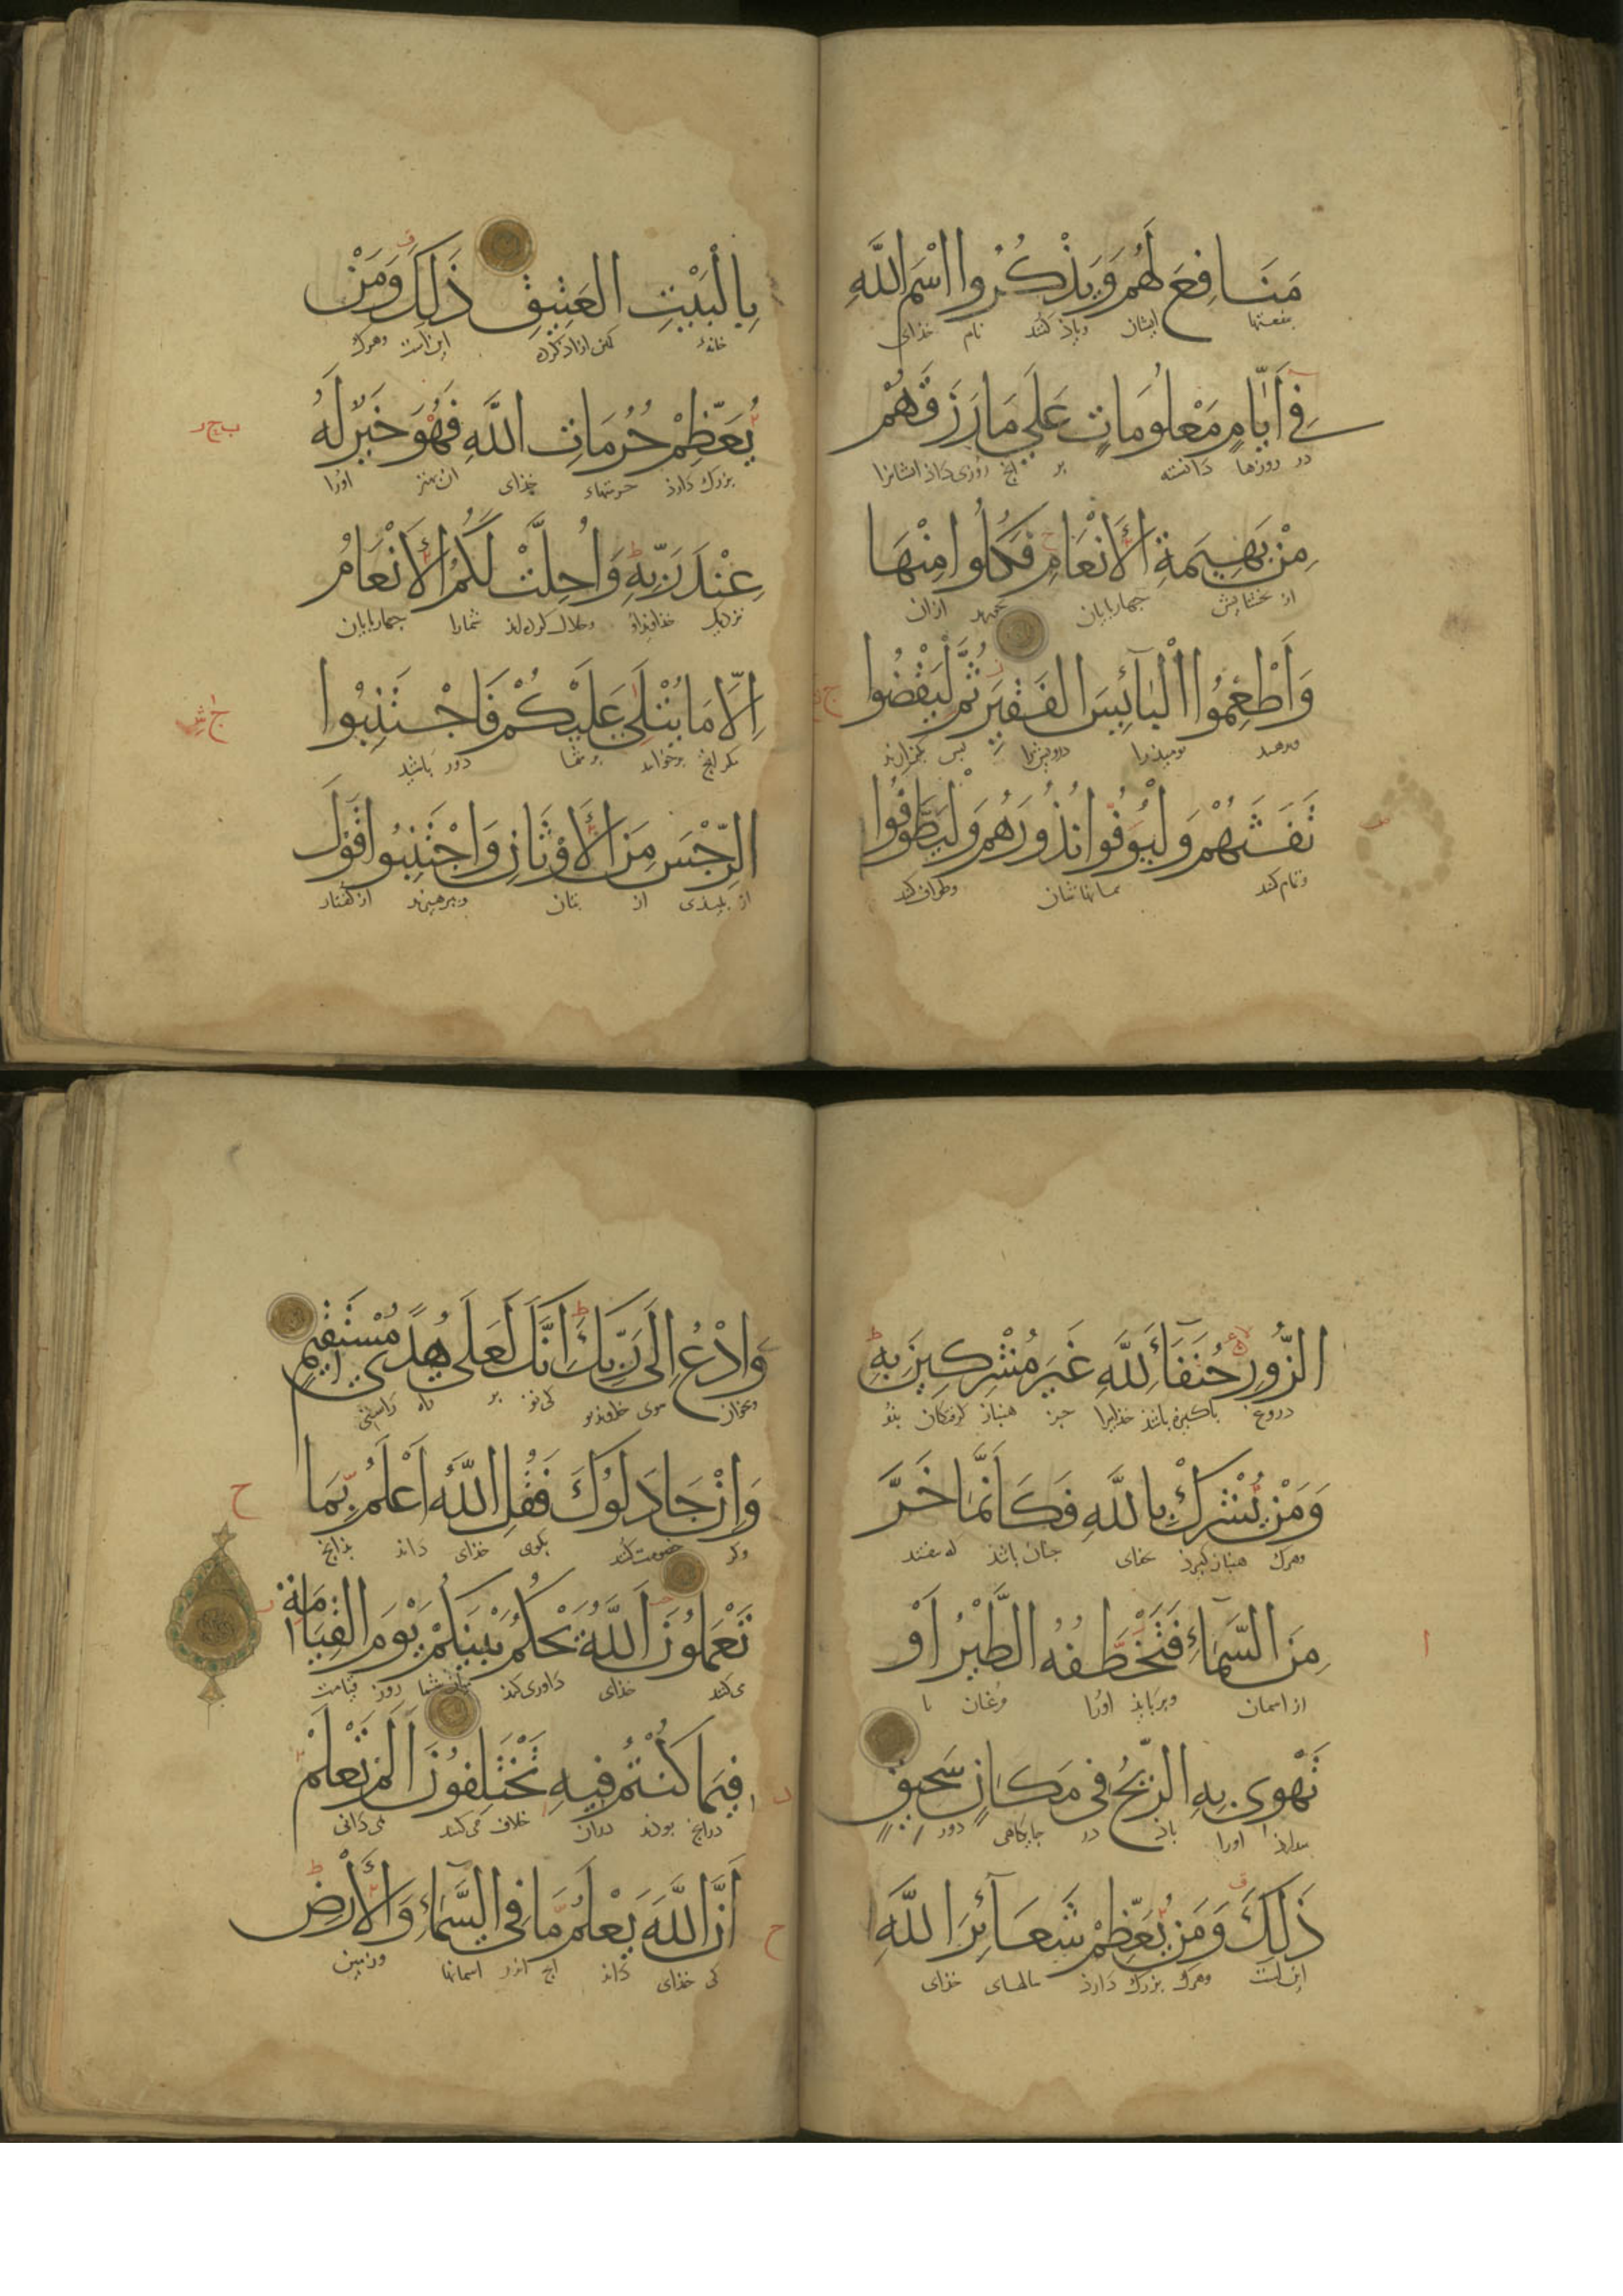 مَنَافِعَ لَهُمْ وَيَذْكُرُوا اسْمَ اللَّهِ
ایشان ویاذ کنند نام خذای
فِي أَيَّامٍ مَعْلُومَاتٍ عَلَى مَا رَزَقَهُمْ
در روزها دانسته بر انج روزی داذ ایشانرا
مِنْ بَهِيمَةِ الْأَنْعَامِ فَكُلُوا مِنْهَا
از جهاربایان ازان
وَأَطْعِمُوا الْبَائِسَ الْفَقِيرَ ثُمَّ لْيَقْضُوا
درویش را بس
تَفَثَهُمْ وَلْيُوفُوا نُذُورَهُمْ وَلْيَطَّوَّفُوا
وتمام کنند وطواف کنند
بِالْبَيْتِ الْعَتِيقِ ذَلِكَ وَمَنْ
خانهٔ کهن ازاد کرده این است وهرک
يُعَظِّمْ حُرُمَاتِ اللَّهِ فَهُوَ خَيْرٌ لَهُ
بزرک دارذ حرمتهاء خذای ان بهتر اورا
عِنْدَ رَبِّهِ وَأُحِلَّتْ لَكُمُ الْأَنْعَامُ
نزدیک خذاوند او وحلال کرده اند شمارا جهاربایان
إِلَّا مَا يُتْلَى عَلَيْكُمْ فَاجْتَنِبُوا
مکر انج برخوانند بر شما دور باشید
الرِّجْسَ مِنَ الْأَوْثَانِ وَاجْتَنِبُوا قَوْلَ
از بلیذی از بتان وببرهیزید از کفتار
الزُّورِ حُنَفَاءَ لِلَّهِ غَيْرَ مُشْرِكِينَ بِهِ
دروغ باکیزه باشند خذایرا جز هنباز کرفتکان بذو
وَمَنْ يُشْرِكْ بِاللَّهِ فَكَأَنَّمَا خَرَّ
وهرک هنباز کیرد بخدای جنان باشذ که بیفتد
مِنَ السَّمَاءِ فَتَخْطَفُهُ الطَّيْرُ أَوْ
از اسمان وبربایذ اورا مرغان یا
تَهْوِي بِهِ الرِّيحُ فِي مَكَانٍ سَحِيقٍ
اورا باذ در جایکاهی دور
ذَلِكَ وَمَنْ يُعَظِّمْ شَعَائِرَ اللَّهِ
این است وهرک بزرک دارذ خذای
وَادْعُ إِلَى رَبِّكَ إِنَّكَ لَعَلَى هُدًى مُسْتَقِيمٍ
وبخوان سوی خذاوند تو کی تو بر راه راستی
وَإِنْ جَادَلُوكَ فَقُلِ اللَّهُ أَعْلَمُ بِمَا
وکر خصومت کنند بکوی خذای داند بذانج
تَعْمَلُونَ اللَّهُ يَحْكُمُ بَيْنَكُمْ يَوْمَ الْقِيَامَةِ
می کنند خذای داوری کند میان شما روز قیامت
فِيمَا كُنْتُمْ فِيهِ تَخْتَلِفُونَ أَلَمْ تَعْلَمْ
درانج بودند دران خلاف می کنند نمی دانی
أَنَّ اللَّهَ يَعْلَمُ مَا فِي السَّمَاءِ وَالْأَرْضِ
کی خذای داند انج اندر اسمانها وزمین